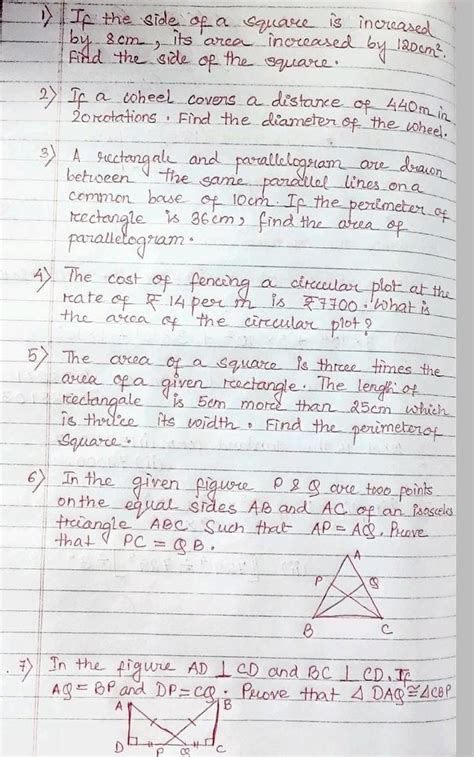 1) If the side of a square is increased
by 8cm, its area increased by 120cm².
Find the side of the square.
2) If a wheel covers a distance of 440m in
20 rotations. Find the diameter of the wheel.
3) A rectangale and parallelogram are drawn
between the same parallel lines on a
common base of 10cm. If the perimeter of
rectangle is 36cm, find the area of
parallelogram.
4) The cost of fencing a circular plot at the
rate of ₹ 14 per m is ₹7700. What is
the area of the circular plot?
5) The area of a square is three times the
area of a given rectangle. The length of
rectangale is 5cm more than 25cm which
is thrice its width. Find the perimeter of
square.
6) In the given figure P & Q are two points
on the equal sides AB and AC of an isosceles
triangle ABC such that AP = AQ, Prove
that PC = QB.
A
P Q
B C
7) In the figure AD ⊥ CD and BC ⊥ CD. If
AQ = BP and DP = CQ. Prove that △ DAQ ≅ △CBP
A B
D P Q C